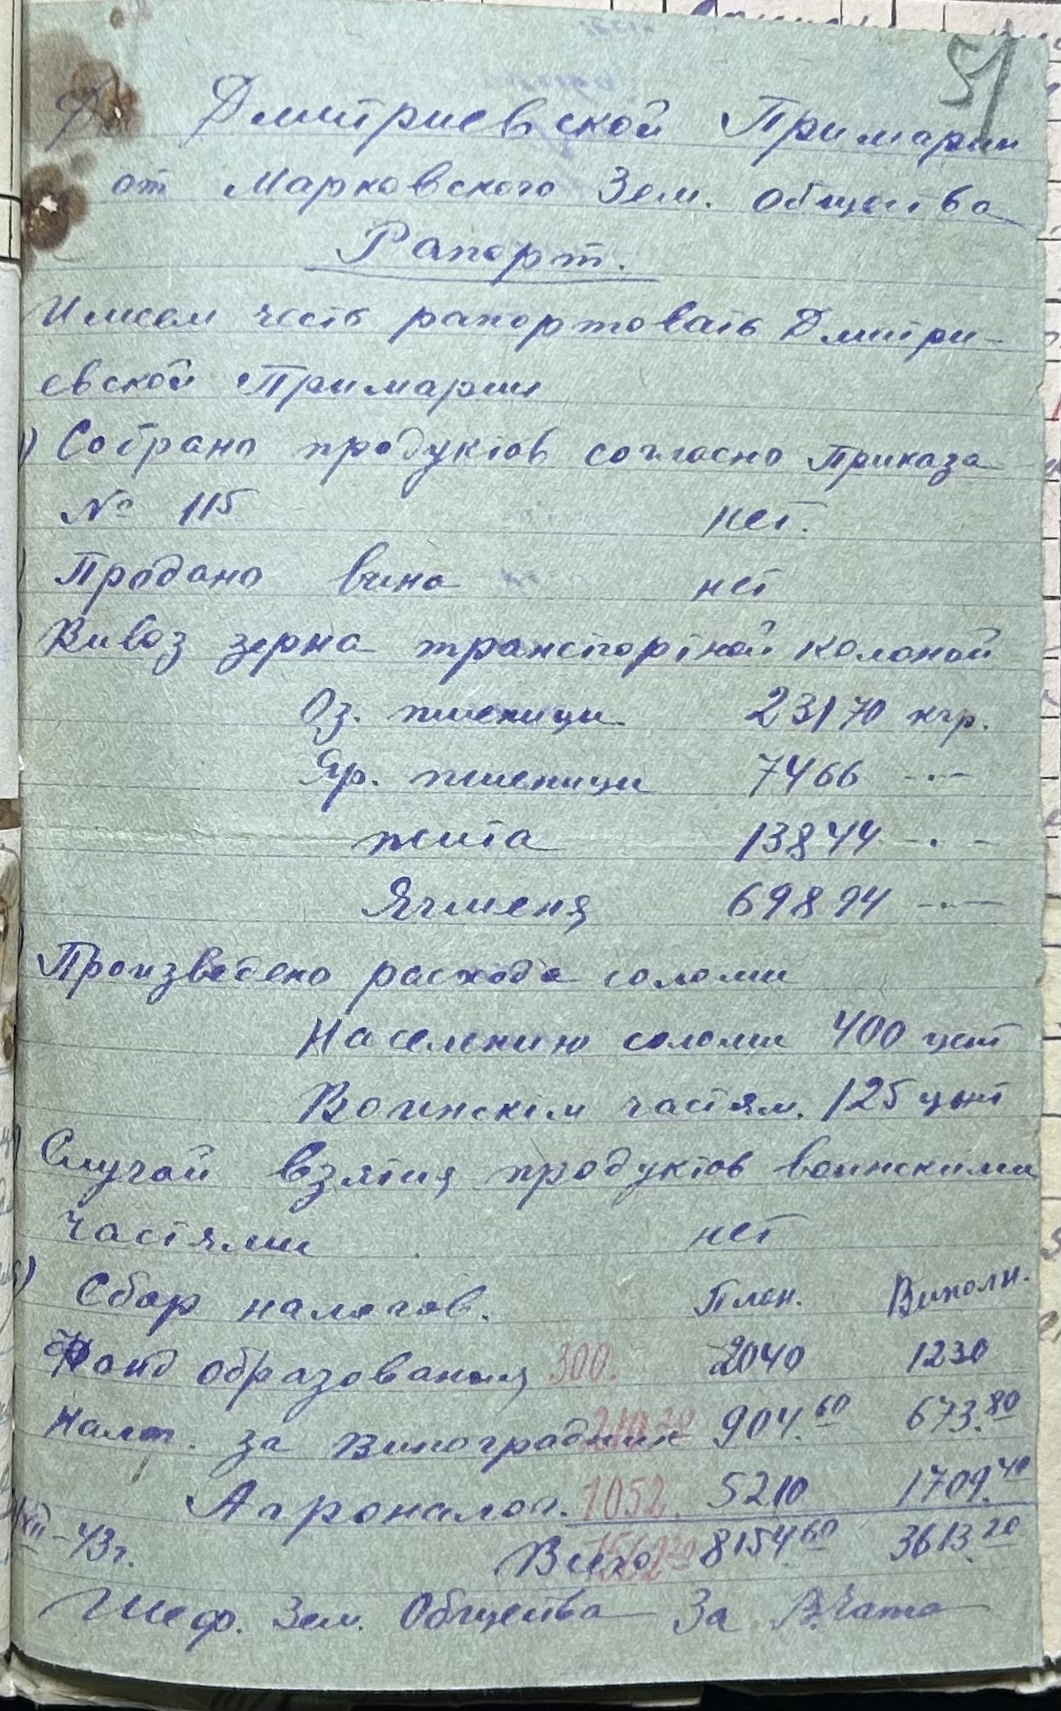 51
Дмитриевской Примарии
от Марковского Зем. общества
Рапорт.
Имеем честь рапортовать Дмитри-
евской Примарии
) Собрано продуктов согласно Приказа
№ 115 нет.
) Продано вина нет
Вивоз зерна транспортной колоной
Оз. пшеници 23170 кгр.
Яр. пшеници 7466 -·-
жита 13844 -·-
Ячменя 69894 -·-
Произведено расхода соломи
Населению соломи 400 цент
Воинскім частям. 125 цнт
Случай взятия продуктов воинскими
частями нет
) Сбор налогов. План. Виполн.
Фонд образования 300. 2040 1230
Налог. за виноградник 904.60 673.80
Агроналог. 1052. 5210 1709.40
XII-43г. Всего 8154.60 3613.20
Шеф. Зем. Общества За